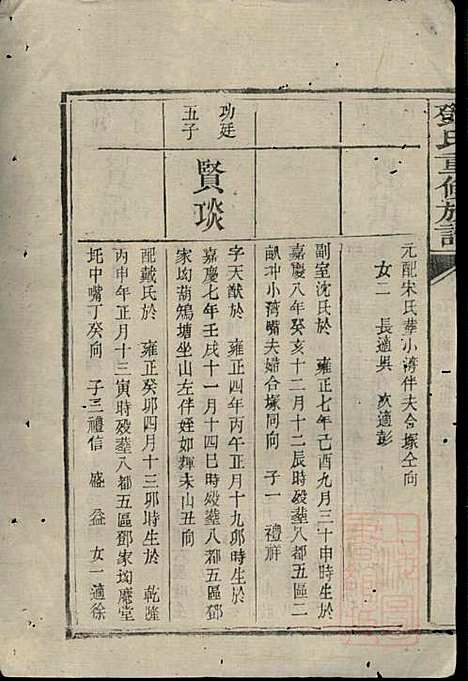 鄧氏重修族譜
元配宋氏葬小湾伴夫合塚仝向
女二 長適吳 次適彭
副室沈氏於 雍正七年己酉九月三十申時生於
嘉慶八年癸亥十二月十二辰時歿葬八都五區二
畝冲小湾嘴夫婦合塚同向 子一 禮祥
功廷
五子
賢琰
字天猷於 雍正四年丙午正月十九卯時生於
嘉慶七年壬戌十一月十四巳時歿葬八都五區鄧
家坳葫鴆塘坐山左伴姪如輝未山丑向
配戴氏於 雍正癸卯四月十三卯時生於 乾隆
丙申年正月十三寅時歿葬八都五區鄧家坳廳堂
坵中嘴丁癸向 子三禮信 盛 益 女一適徐